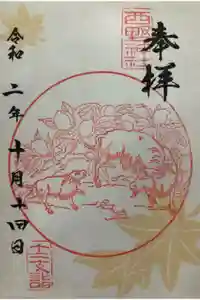 奉拝
令和二年十月十四日